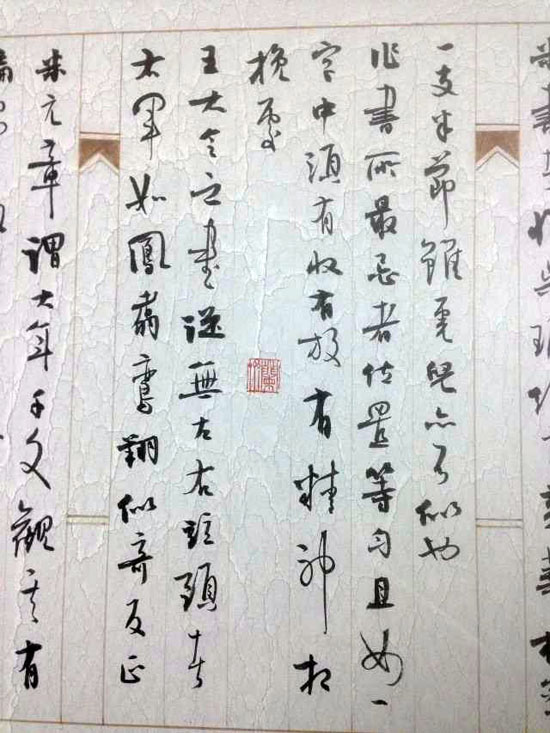 一支半節雖虎兒亦不似也
作書所最忌者位置等勻且如一
字中須有收有放有精神相
挽處
王大令之書從無左右並頭者
右軍如鳳翥鸞翔似奇反正
米元章謂大年千文觀其有